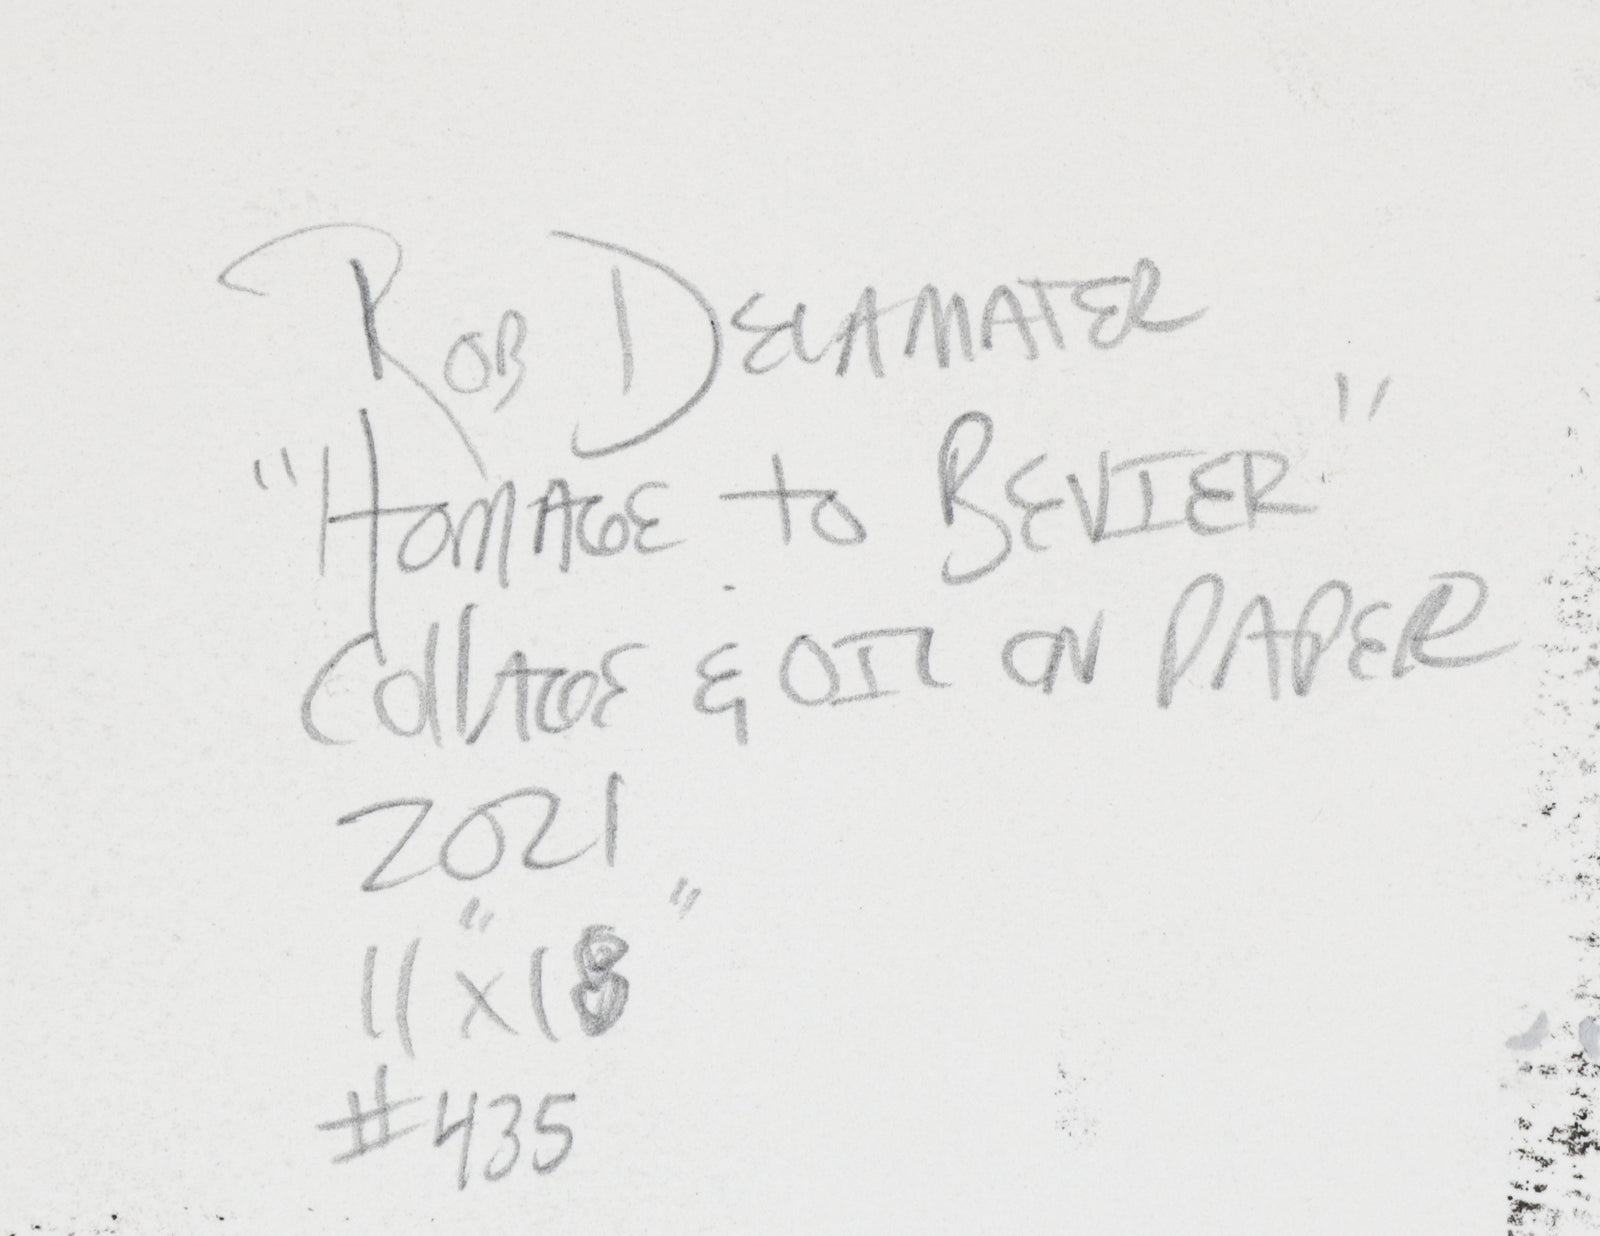 Rob Delamater
"Homage to Bevier"
Collage & oil on paper
2021
11" x 18"
#435